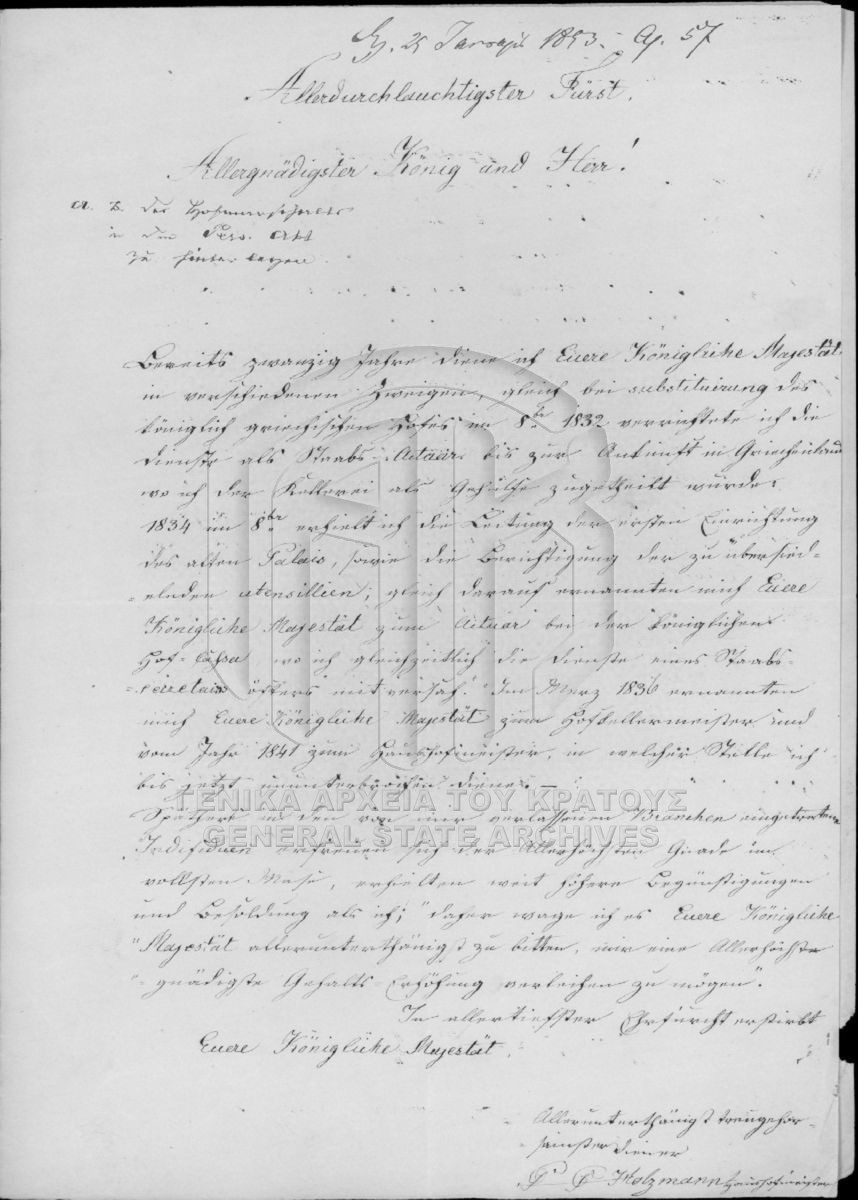 25 1853. 57
Allerdurchlauchtigster Fürst.
Allergnädigster König und Herr!
a. z. des Hofmarschalls
in den Pers. Akt
zu hinterlegen
Bereits zwanzig Jahre diene ich Euere Königliche Majestät
in verschiedenen Zweigen, gleich bei substituirung des
königlich griechischen Hofes im 8br 1832 verrichtete ich die
Dienste als Staabs-Actuar bis zur Ankunft in Griechenland
wo ich der Kellerei als Gehülfe zugetheilt wurde.
1834 im 8br erhielt ich die Leitung der ersten Einrichtung
des alten Palais, sowie die Berichtigung der zu übersied-
-elnden utensillien; gleich darauf ernannten mich Euere
Königliche Majestät zum Actuar bei der königlichen
Hof-Cassa, wo ich gleichzeitlich die Dienste eines Staabs-
öfters mit versah. Im Merz 1836 ernannten
mich Euere Königliche Majestät zum Hofkellermeister und
vom Jahr 1841 zum Haushofmeister, in welcher Stelle ich
bis jetzt ununterbrochen diene. —
Spätere in den von mir verlassenen Branchen eingetretene
Indifiduen erfreuen sich der Allerhöchsten Gnade im
vollsten Mase, erhielten weit höhere Begünstigungen
und Besoldung als ich; "daher wage ich es Euere Königliche
"Majestät allerunterthänigst zu bitten, mir eine Allerhöchst
"-gnädigste Gehalts-Erhöhung verleihen zu mögen".
In allertiefster Ehrfurcht erstirbt
Euere Königliche Majestät
Allerunterthänigst treugehor-
samster Diener
Holzmann Haushofmeister
ΓΕΝΙΚΑ ΑΡΧΕΙΑ ΤΟΥ ΚΡΑΤΟΥΣ
GENERAL STATE ARCHIVES